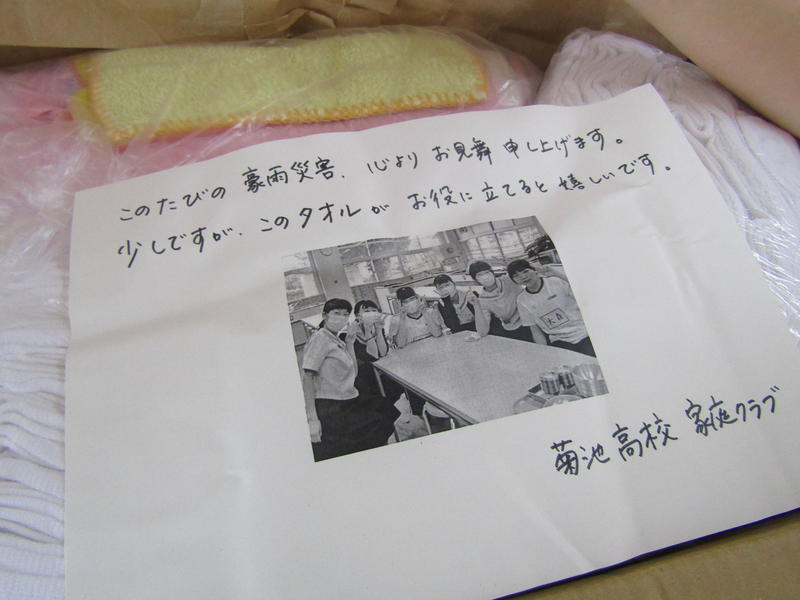 このたびの 豪雨災害、心より お見舞 申し上げます。
少しですが、このタオルが お役に立てると 嬉しいです。
菊池高校 家庭クラブ